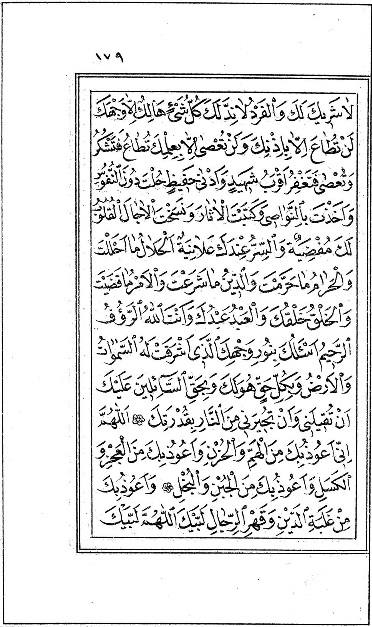 ١٧٩
لَا شَرِيكَ لَكَ وَالْفَرْدُ لَا نِدَّ لَكَ كُلُّ شَيْءٍ هَالِكٌ اِلَّا وَجْهَكَ
لَنْ تُطَاعَ اِلَّا بِاِذْنِكَ وَلَنْ تُعْصَى اِلَّا بِعِلْمِكَ تُطَاعُ فَتَشْكُرُ
وَتُعْصَى فَتَغْفِرُ اَقْرَبُ شَهِيدٍ وَاَدْنَى حَفِيظٍ حُلْتَ دُونَ النُّفُوسِ
وَاَخَذْتَ بِالنَّوَاصِي وَكَتَبْتَ الْاٰثَارَ وَنَسَخْتَ الْاٰجَالَ اَلْقُلُوبُ
لَكَ مُفْضِيَةٌ وَالسِّرُّ عِنْدَكَ عَلَانِيَةٌ اَلْحَلَالُ مَا اَحْلَلْتَ
وَالْحَرَامُ مَا حَرَّمْتَ وَالدِّينُ مَا شَرَعْتَ وَالْاَمْرُ مَا قَضَيْتَ
وَالْخَلْقُ خَلْقُكَ وَالْعَبْدُ عَبْدُكَ وَاَنْتَ اللّٰهُ الرَّؤُفُ
الرَّحِيمُ اَسْئَلُكَ بِنُورِ وَجْهِكَ الَّذِي اَشْرَقَتْ لَهُ السَّمٰوَاتُ
وَالْاَرْضُ وَبِكُلِّ حَقٍّ هُوَ لَكَ وَبِحَقِّ السَّآئِلِينَ عَلَيْكَ
اَنْ تُقِيلَنِي وَاَنْ تُجِيرَنِي مِنَ النَّارِ بِقُدْرَتِكَ ❁ اَللّٰهُمَّ
اِنِّي اَعُوذُ بِكَ مِنَ الْهَمِّ وَالْحُزْنِ وَاَعُوذُ بِكَ مِنَ الْعَجْزِ وَ
الْكَسَلِ وَاَعُوذُ بِكَ مِنَ الْجُبْنِ وَالْبُخْلِ ❁ وَاَعُوذُ بِكَ
مِنْ غَلَبَةِ الدَّيْنِ وَقَهْرِ الرِّجَالِ لَبَّيْكَ اَللّٰهُمَّ لَبَّيْكَ